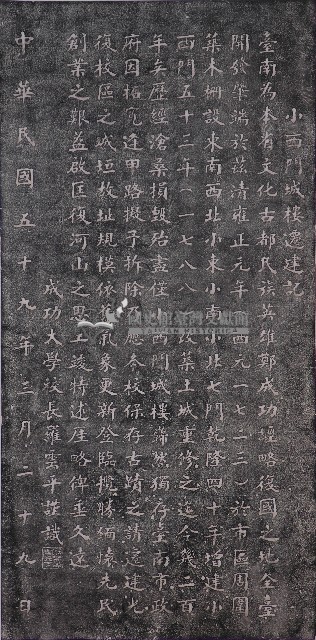 小西門城樓遷建記
臺南為本省文化古都民族英雄鄭成功經略復國之地全臺
開發肇端於茲清雍正元年(西元一七二三)於市區周圍
築木柵設東南西北小東小南小北七門乾隆四十年增建小
西門五十三年(一七八八)改築土城重修之迄今幾二百
年矣歷經滄桑損毀殆盡僅小西門城樓巋然獨存臺南市政
府因拓寬逢甲路擬予拆除應本校保存古蹟之請遂建於
復校區之城垣故址規模依舊氣象更新登臨攬勝緬懷先民
創業之艱益啟匡復河山之思工竣特述厓略俾垂久遠
成功大學校長羅雲平謹識
中華民國五十九年三月二十九日